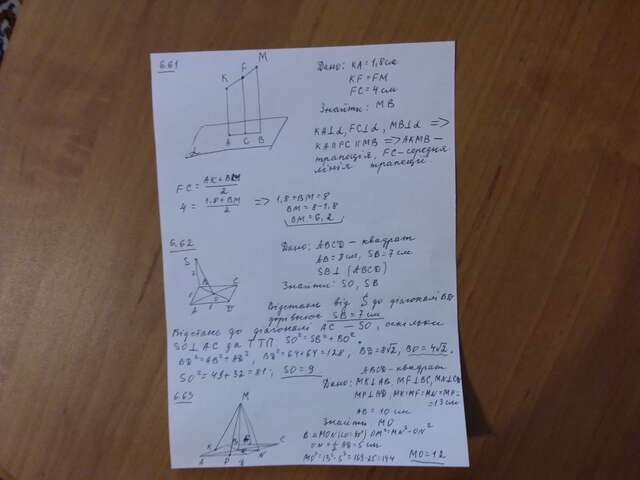 6.61
M
F
K
A C B
α
Дано: KA = 1,8 см
KF = FM
FC = 4 см
Знайти: MB
KA⊥α, FC⊥α, MB⊥α =>
KA∥FC∥MB => AKMB –
трапеція, FC – середня
лінія трапеції.
FC = (AK + BM)/2
4 = (1,8 + BM)/2 => 1,8 + BM = 8
BM = 8 - 1,8
BM = 6,2
6.62
S
B C
A D
Дано: ABCD – квадрат
AB = 8 см, SB = 7 см
SB⊥(ABCD)
Знайти: SO, SB
Відстань від S до діагоналі BD
дорівнює SB = 7 см
Відстань до діагоналі AC – SO, оскільки
SO⊥AC за ТТП SO² = SB² + BO².
BD² = AB² + AD², BD² = 64 + 64 = 128, BD = 8√2, BO = 4√2.
SO² = 49 + 32 = 81; SO = 9
6.63
M
K B F C
A P N
ABCD – квадрат
Дано: MK⊥AB, MF⊥BC, MN⊥CD
MP⊥AD, MK=MF=MN=MP=
= 13 см
AB = 10 см
Знайти MO
В ΔMON OM² = MN² - ON²
ON = ½ AB = 5 см
MO² = 13² - 5² = 169 - 25 = 144 MO = 12